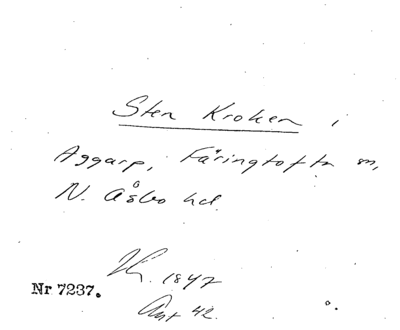 Sten Kroken i
Aggarp, Färingtofta sn,
N. Åsbo hd.
1847
Nr 7237.
42.